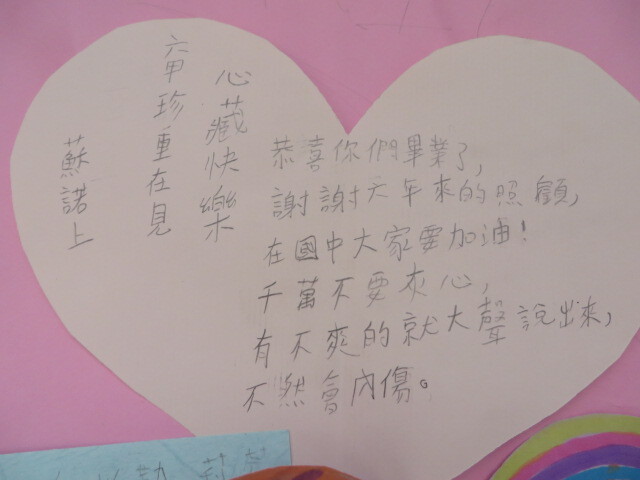 恭喜你們畢業了,
謝謝六年來的照顧,
在國中大家要加油!
千萬不要灰心,
有不爽的就大聲說出來,
不然會內傷。
心藏快樂
六甲珍重在見
蘇諾上